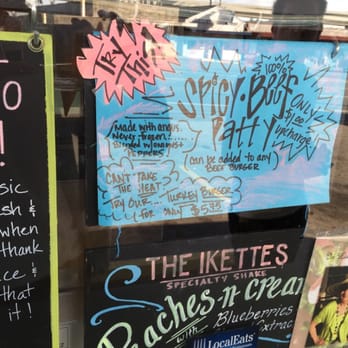 O
!
sic
sh &
when
thank
ce &
that
it!
TRY
this!
100%
SPICY • BEEF
Patty
ONLY
$1.00
upcharge
Made with angus.
Never frozen.
Peppers
can be added to any
BEEF BURGER
CAN'T TAKE
THE HEAT
TRY OUR...
TURKEY BURGER
FOR ONLY $5.95
THE IKETTES
SPECIALTY SHAKE
Peaches-n-Crea
with Blueberries
Extrac
LocalEats